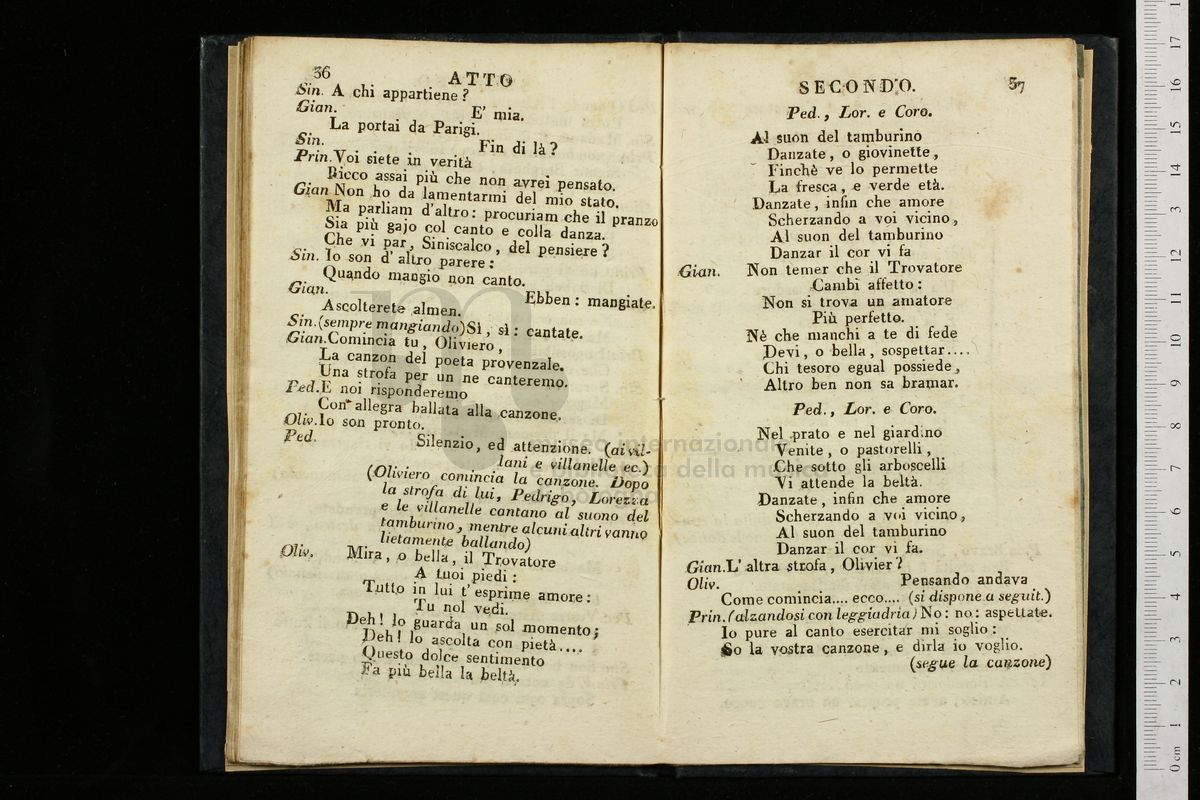 36
ATTO
Sin. A chi appartiene?
Gian. E' mia.
La portai da Parigi.
Sin. Fin di là?
Prin. Voi siete in verità
Ricco assai più che non avrei pensato.
Gian Non ho da lamentarmi del mio stato.
Ma parliam d'altro: procuriam che il pranzo
Sia più gajo col canto e colla danza.
Che vi par, Siniscalco, del pensiere?
Sin. Io son d'altro parere:
Quando mangio non canto.
Gian. Ebben: mangiate.
Ascolterete almen.
Sin. (sempre mangiando) Sì, sì: cantate.
Gian. Comincia tu, Oliviero,
La canzon del poeta provenzale.
Una strofa per un ne canteremo.
Ped. E noi risponderemo
Con allegra ballata alla canzone.
Oliv. Io son pronto.
Ped. Silenzio, ed attenzione. (ai vil-
lani e villanelle ec.)
(Oliviero comincia la canzone. Dopo
la strofa di lui, Pedrigo, Lorezza
e le villanelle cantano al suono del
tamburino, mentre alcuni altri vanno
lietamente ballando)
Oliv. Mira, o bella, il Trovatore
A tuoi piedi:
Tutto in lui t'esprime amore:
Tu nol vedi.
Deh! lo guarda un sol momento;
Deh! lo ascolta con pietà....
Questo dolce sentimento
Fa più bella la beltà.
SECONDO.
37
Ped., Lor. e Coro.
Al suon del tamburino
Danzate, o giovinette,
Finchè ve lo permette
La fresca, e verde età.
Danzate, infin che amore
Scherzando a voi vicino,
Al suon del tamburino
Danzar il cor vi fa
Gian. Non temer che il Trovatore
Cambi affetto:
Non si trova un amatore
Più perfetto.
Nè che manchi a te di fede
Devi, o bella, sospettar....
Chi tesoro egual possiede,
Altro ben non sa bramar.
Ped., Lor. e Coro.
Nel prato e nel giardino
Venite, o pastorelli,
Che sotto gli arboscelli
Vi attende la beltà.
Danzate, infin che amore
Scherzando a voi vicino,
Al suon del tamburino
Danzar il cor vi fa.
Gian. L'altra strofa, Olivier?
Oliv. Pensando andava
Come comincia.... ecco.... (si dispone a seguit.)
Prin. (alzandosi con leggiadria) No: no: aspettate.
Io pure al canto esercitar mi soglio:
So la vostra canzone, e dirla io voglio.
(segue la canzone)
museo internazionale
e biblioteca della musica
0 cm 1 2 3 4 5 6 7 8 9 10 11 12 13 14 15 16 17